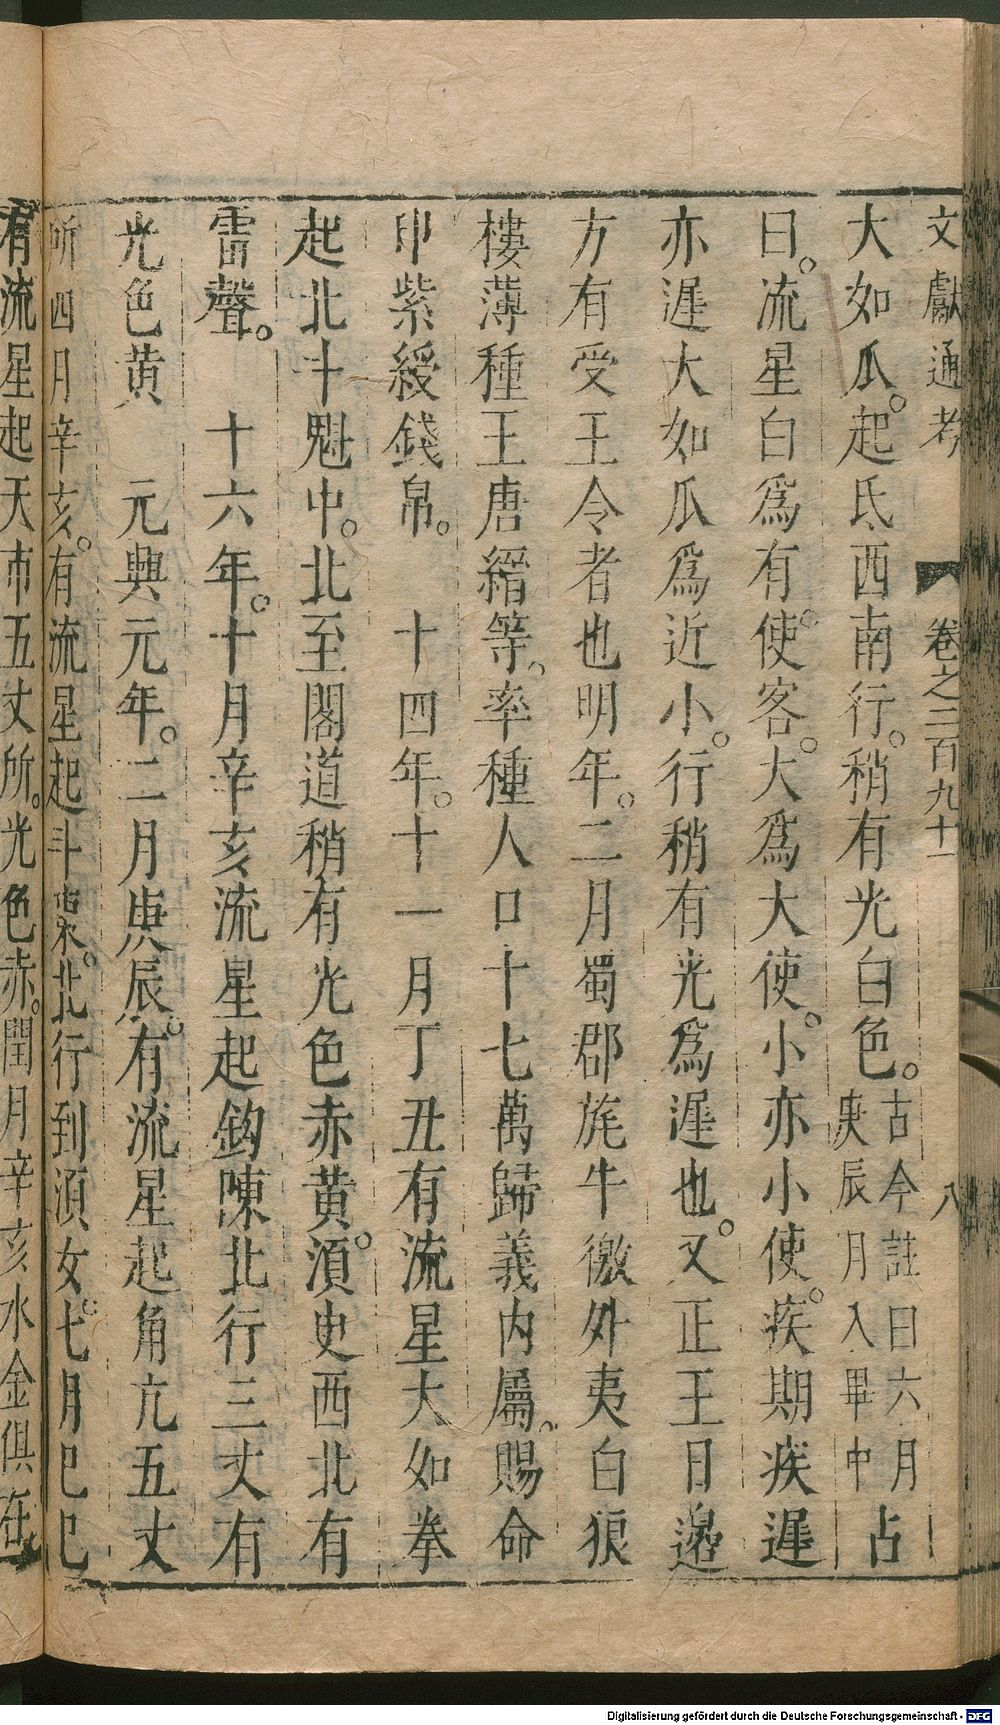 文獻通考 卷之二百九十一 八
大如瓜。起氐西南行。稍有光白色。古今註曰六月庚辰月入畢中占
曰。流星白爲有使。客。大爲大使。小亦小使。疾期疾遲
亦遲大如瓜爲近小。行稍有光爲遲也。又正王日邉
方有受王令者也明年。二月蜀郡旄牛徼外夷白狼
樓薄種王唐繒等。率種人口十七萬歸義內屬。賜命
印紫綬錢帛。 十四年。十一月丁丑有流星大如拳
起北斗魁中。北至閣道稍有光色赤黄。湏史西北有
雷聲。 十六年。十月辛亥流星起鈎陳北行三丈有
光色黄 元興元年。二月庚辰。有流星起角亢五丈
所四月辛亥。有流星起斗東。北行到湏女。七月巳巳
有流星起天市五丈所。光色赤。閏月辛亥水金俱在
Digitalisierung gefördert durch die Deutsche Forschungsgemeinschaft - DFG